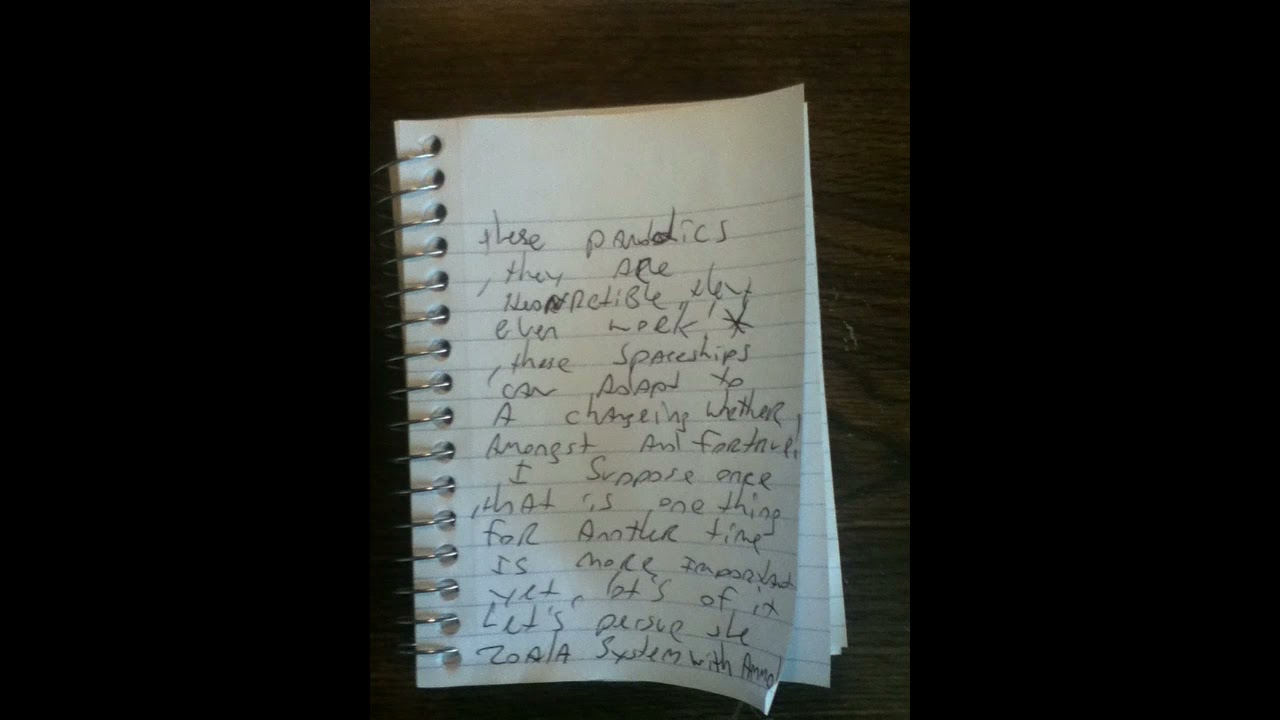 these
, they are
even work *
, these spaceships
can Adapt to
A changeing whether,
Amongst And
I suppose once
, that is one thing
for Another time
Is more important
yet, lot's of it
Let's persue the
system with Ammo